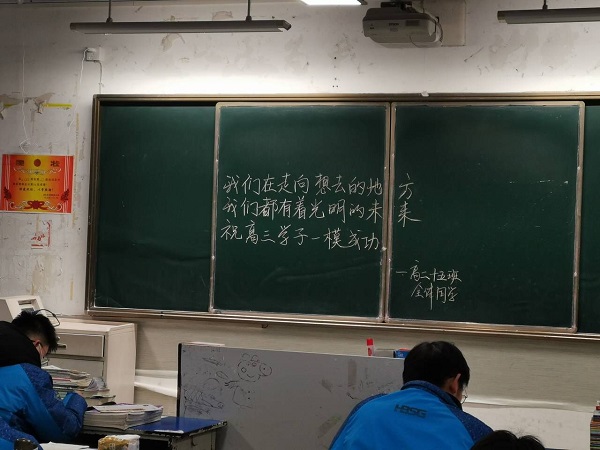 我们在走向想去的地方
我们都有着光明的未来
祝高三学子一模成功
一高二十五班
全体同学